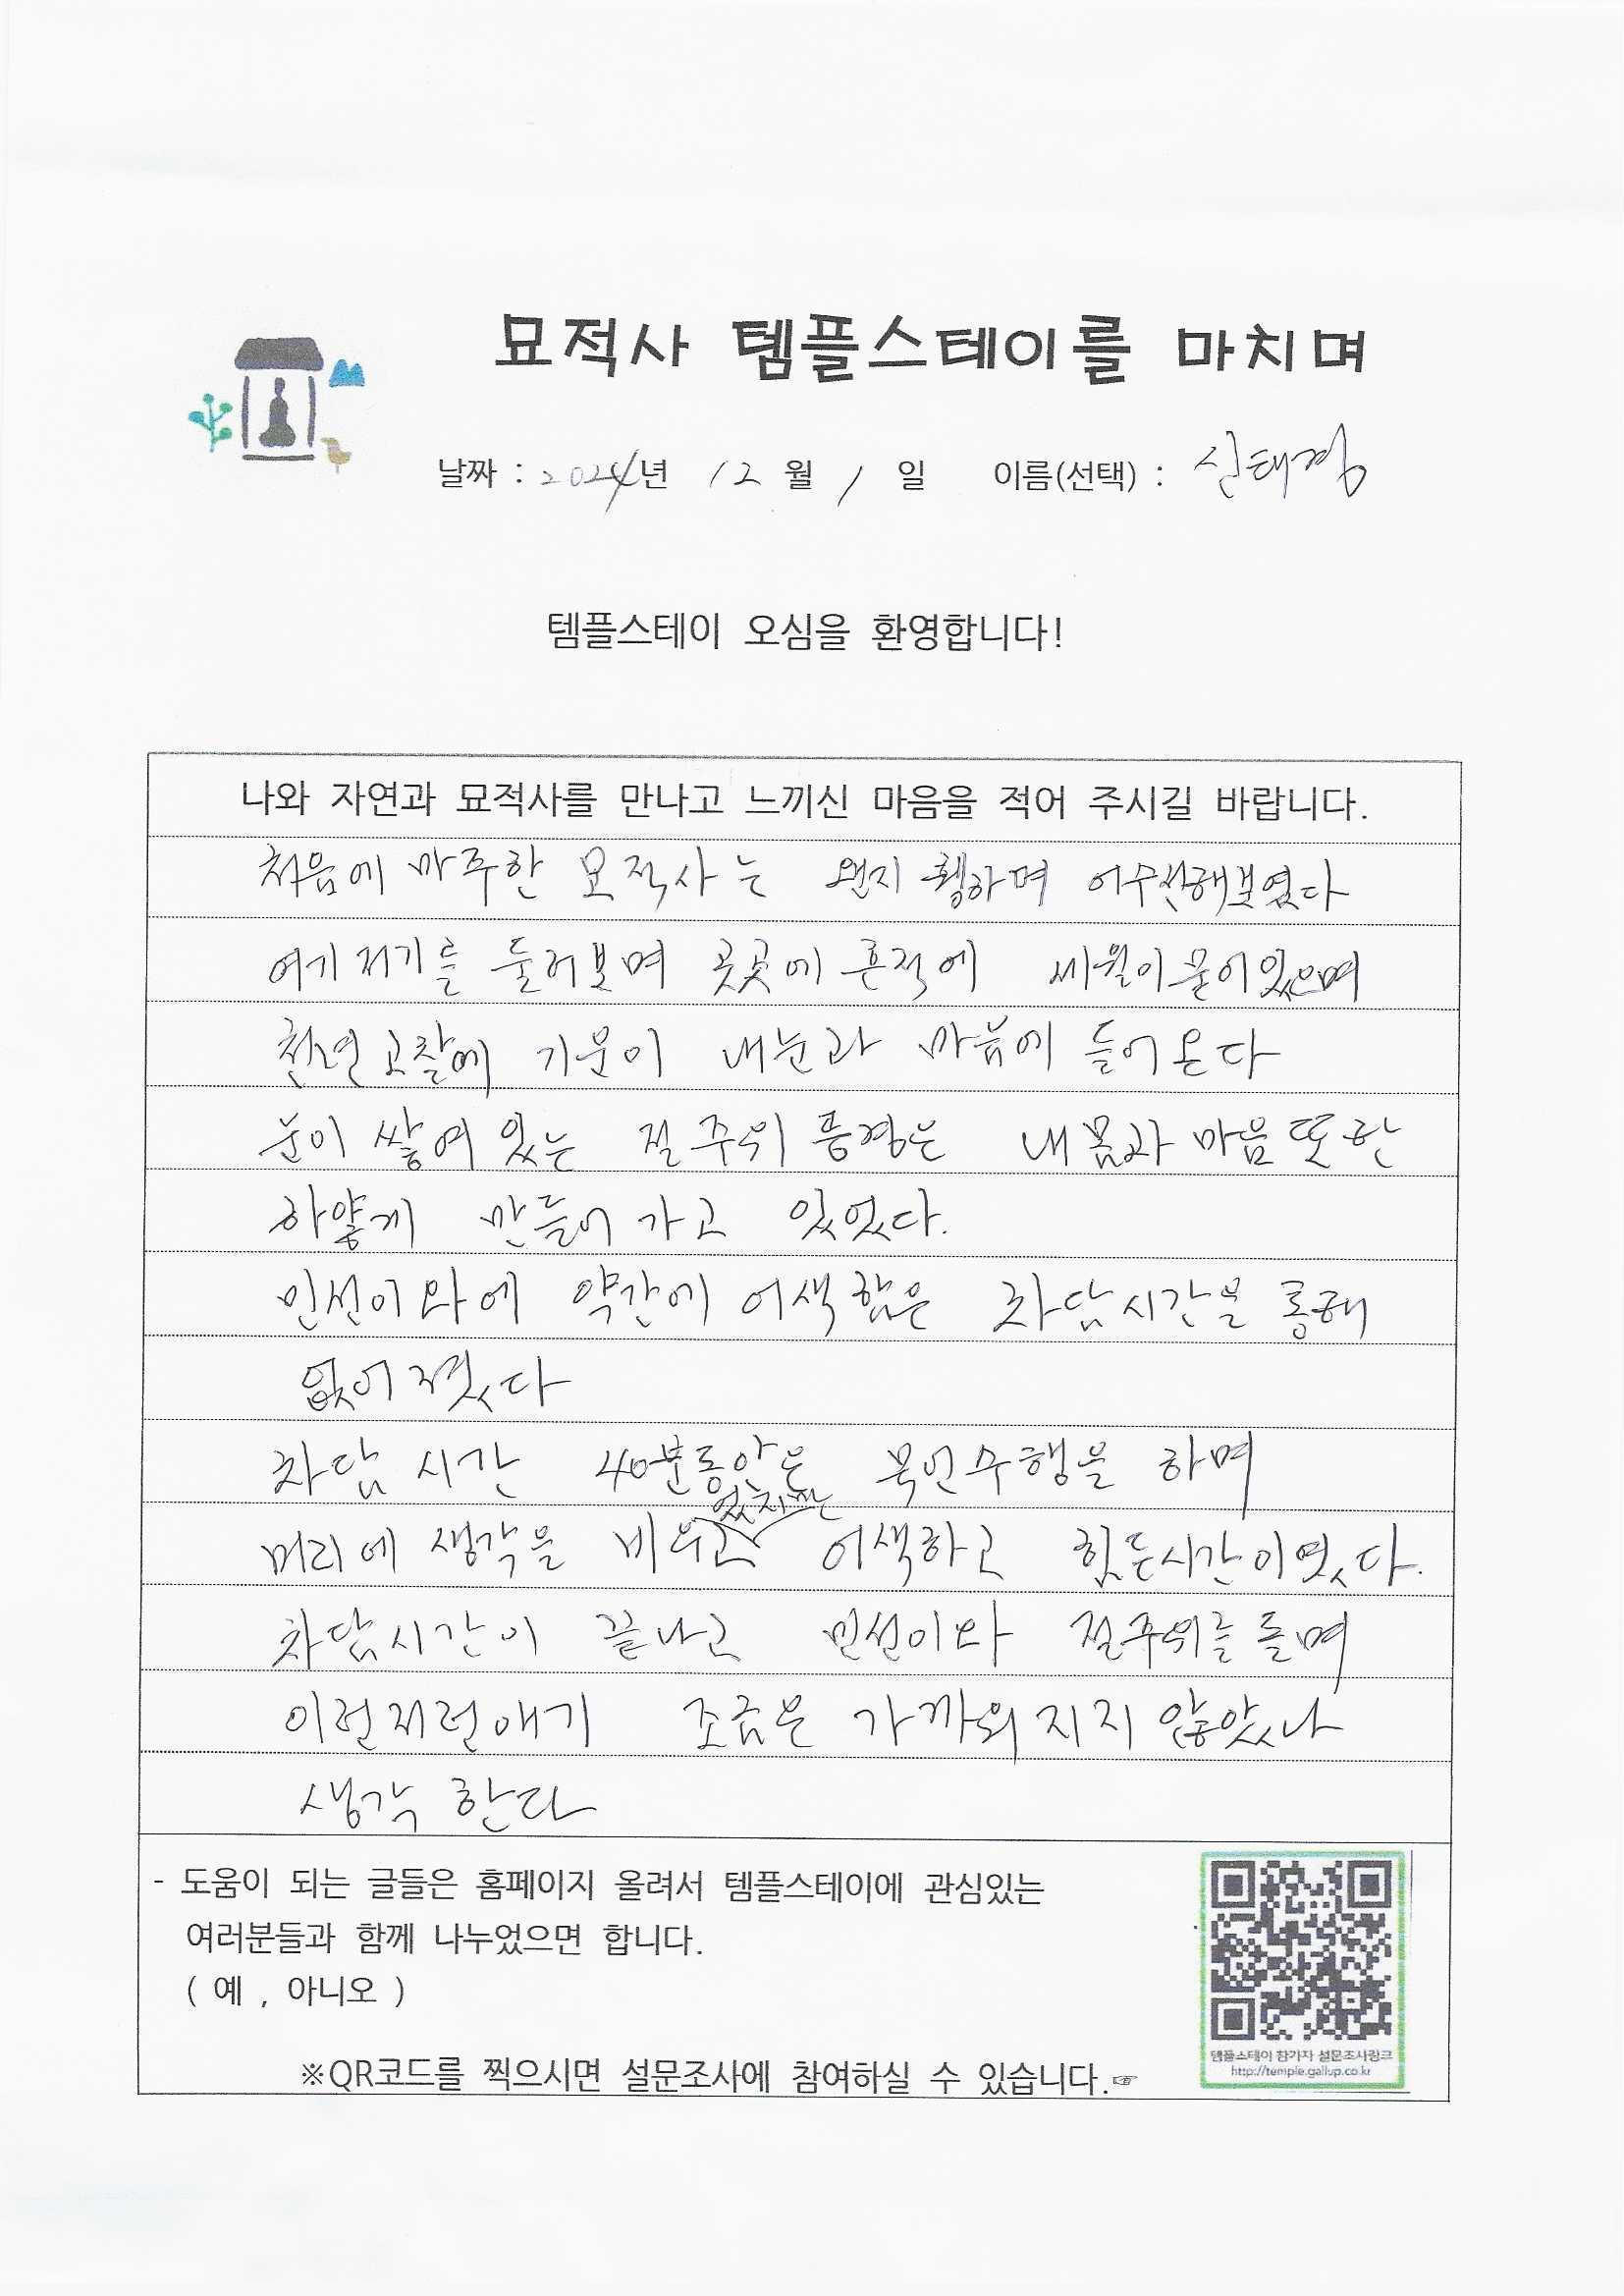 묘적사 템플스테이를 마치며
날짜 : 2024년 12월 1일 이름(선택) : 신태경
템플스테이 오심을 환영합니다!
나와 자연과 묘적사를 만나고 느끼신 마음을 적어 주시길 바랍니다.
처음에 마주한 묘적사는 왠지 휑하며 어수선해보였다
여기저기를 둘러보며 곳곳에 흔적에 세월이 묻어있으며
천년고찰에 기운이 내눈과 마음에 들어온다
눈이 쌓여 있는 절 주위 풍경은 내 몸과 마음 또한
하얗게 만들어 가고 있었다.
민선이와에 약간에 어색함은 차담시간을 통해
없어졌다
차담 시간 40분동안은 묵언수행을 하며
머리에 생각을 비우고 었지만 어색하고 힘든시간이였다.
차담시간이 끝나고 민선이와 절주위를 돌며
이런저런얘기 조금은 가까워지지 않았나
생각 한다
- 도움이 되는 글들은 홈페이지 올려서 템플스테이에 관심있는
여러분들과 함께 나누었으면 합니다.
( 예 , 아니오 )
※QR코드를 찍으시면 설문조사에 참여하실 수 있습니다.☞
템플스테이 참가자 설문조사링크
http://temple.gallup.co.kr